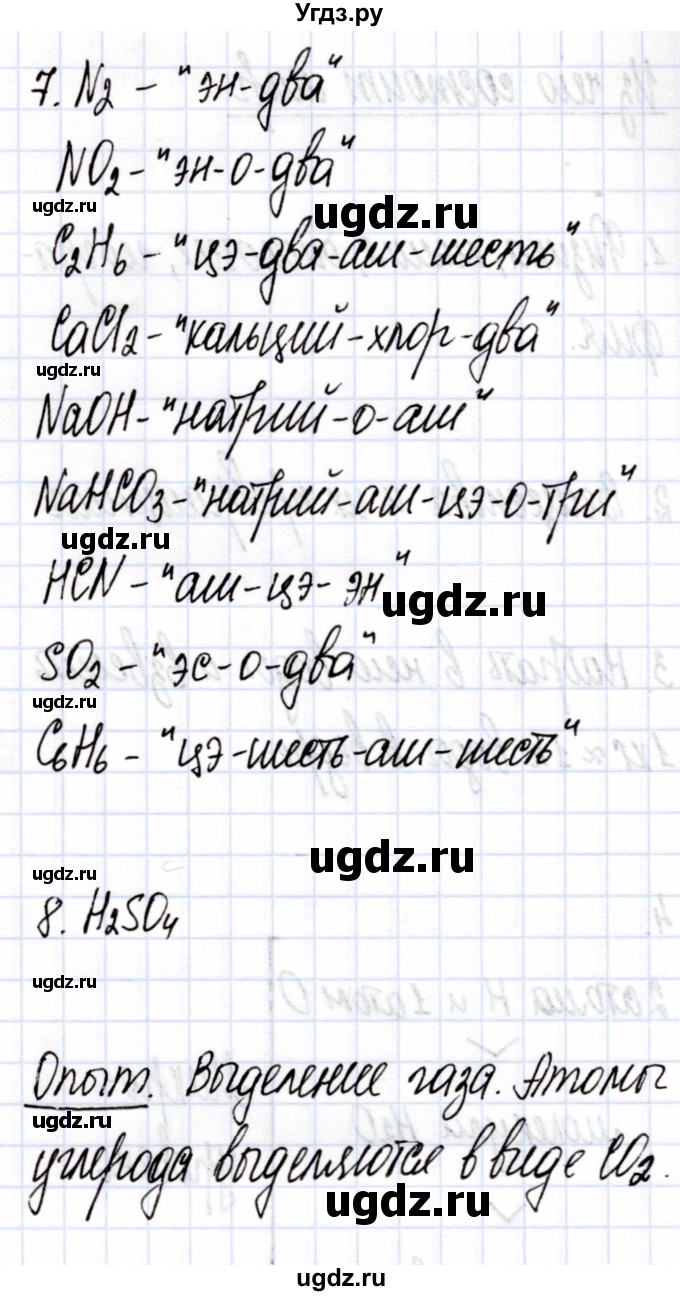 Угдз.ру
7. N₂ – "эн-два"
NO₂ – "эн-о-два"
ugdz.ru
ugdz.ru
C₂H₆ – "цэ-два-аш-шесть"
CaCl₂ – "кальций-хлор-два"
ugdz.ru
NaOH – "натрий-о-аш"
NaHCO₃ – "натрий-аш-цэ-о-три"
ugdz.ru
HCN – "аш-цэ-эн"
ugdz.ru
SO₂ – "эс-о-два"
ugdz.ru
C₆H₆ – "цэ-шесть-аш-шесть"
ugdz.ru
ugdz.ru
8. H₂SO₄
ugdz.ru
Опыт. Выделение газа. Атомы
ugdz.ru
углерода выделяются в виде CO₂.
ugdz.ru
ugdz.ru